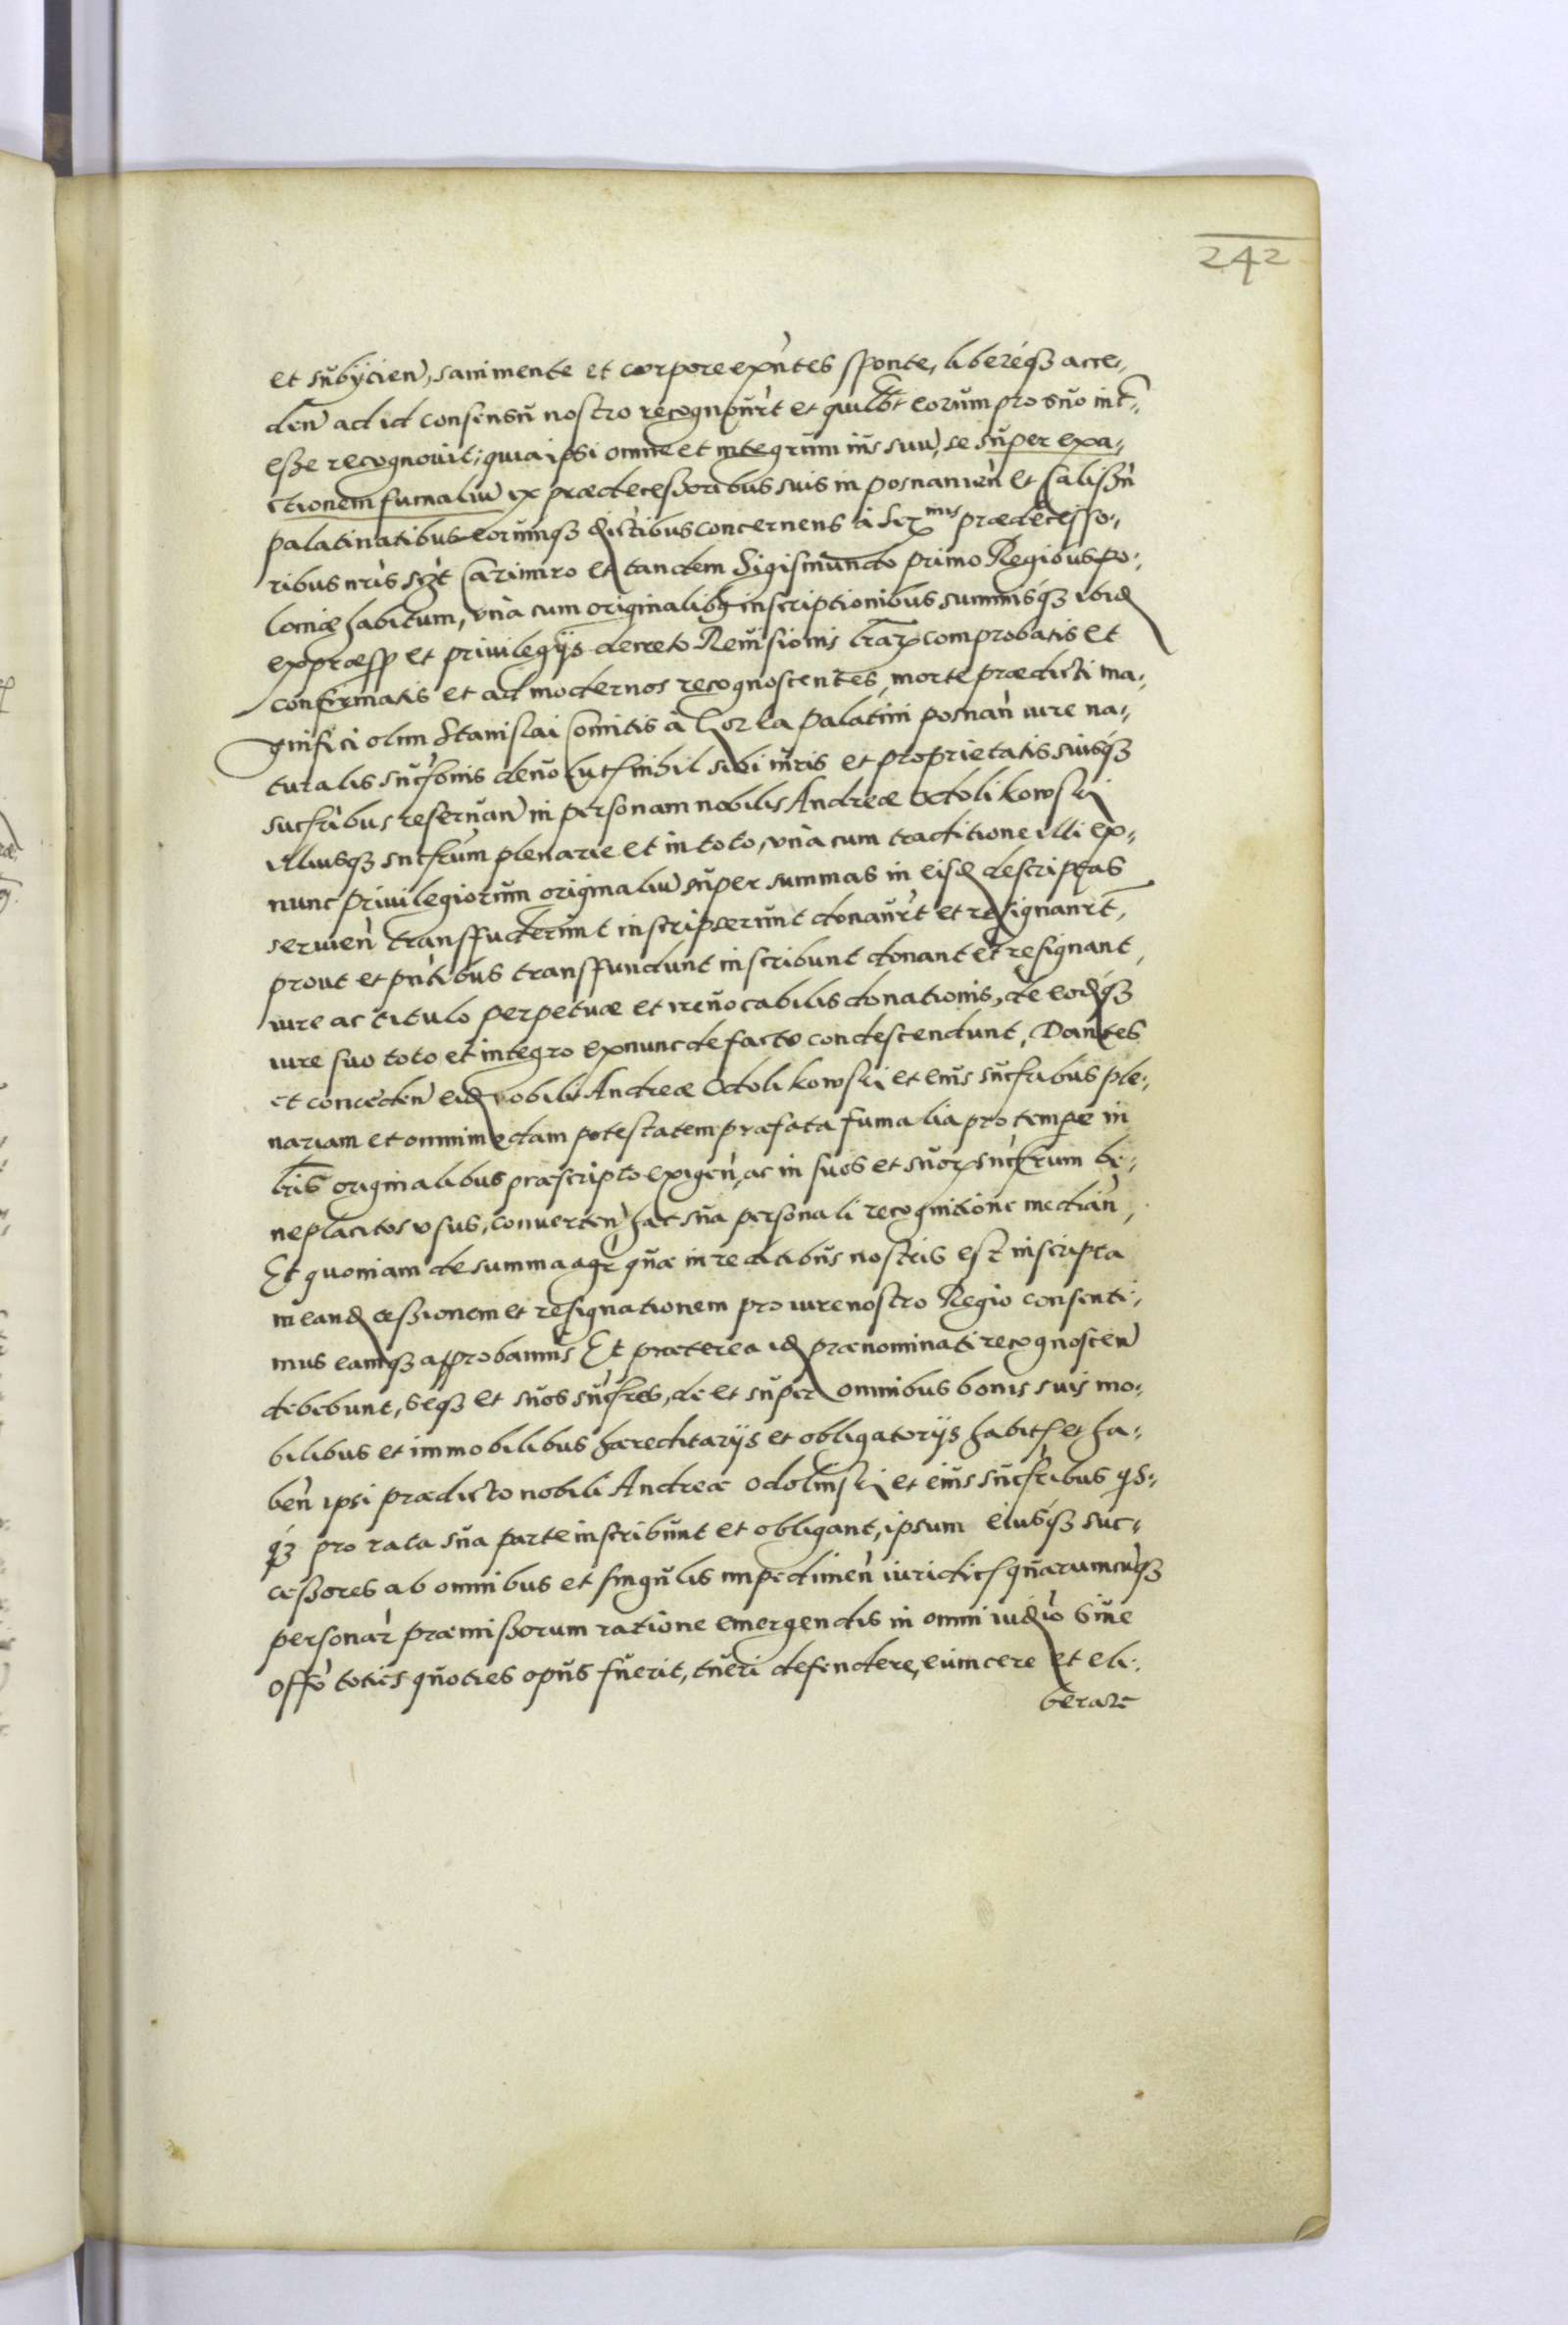 242
et subijcien̄, sani mente et corpore exn̄tes sponte, libereq́ʒ acce-
den̄ ad id consensu nostro recognouer̄t et quilb̄t eorum pro suo int̄-
esse recognouit; quia ipsi omne et integrum ius suū, se super exa-
ctionem fumaliū ex prædecessoribus suis in posnanien̄ et Calissn̄
palatinatibus eorumqʒ districtibus concernens à Ser^mis prædecesso-
ribus nr̄is sczt Cazimiro et tandem Sigismundo primo Regibus po-
loniæ habitum, vnà cum originalibʒ inscriptionibus summisq́ʒ ibid
expræss et priuilegijs decreto Reuisionis l̄rarꝝ comprobatis et
confirmatis et ad modernos recognoscentes, morte prædicti ma-
gnifici olim Stanislai Comitis à Gorka palatini posnan̄ iure na-
turalis succ̄onis deuolut nihil sibi iuris et proprietatis suisq́ʒ
succr̄ibus reseruan̄ in personam nobilis Andreæ Odolikowski
illiusqʒ succr̄um plenarie et in toto, vnà cum traditione illi ex-
nunc priuilegiorum originaliū super summas in eisd descriptas
seruien̄ transffuderunt inscripserunt donauer̄t et resignaur̄t,
prout et pn̄tibus transffundunt inscribunt donant et resignant,
iure ac titulo perpetuæ et irreuocabilis donationis, de eodq́ʒ
iure suo toto et integro exnunc de facto condescendunt, Dantes
et conceden̄ eid nobili Andreæ Odolikowski et eius succr̄ibus ple-
nariam et omnimodam potestatem præfata fumalia pro tempe in
l̄ris originalibus præscripto exigen̄, ac in suos et suorꝝ succr̄um be-
neplacitos vsus, conuerten̄, hac sua personali recognitione median̄,
Et quoniam de summa agr̄ quæ in reditibus nostris est inscripta
in eand cessionem et resignationem pro iure nostro Regio consenti-
mus eamqʒ approbamus Et præterea id prænominati recognoscen̄
debebunt, seqʒ et suos succr̄es, de et super omnibus bonis suis mo-
bilibus et immobilibus hæreditarijs et obligatorijs habit et ha-
ben̄ ipsi prædicto nobili Andreæ Odolinski et eius succr̄ibus qs-
q́ʒ pro rata sua parte inscribunt et obligant, ipsum eiusq́ʒ suc-
cessores ab omnibus et singulis impedimen̄ iuridic quarumcunqʒ
personar̄ præmissorum ratione emergendis in omni iudio siue
offo toties quoties opus fuerit, tueri defendere, euincere et eli-
berare